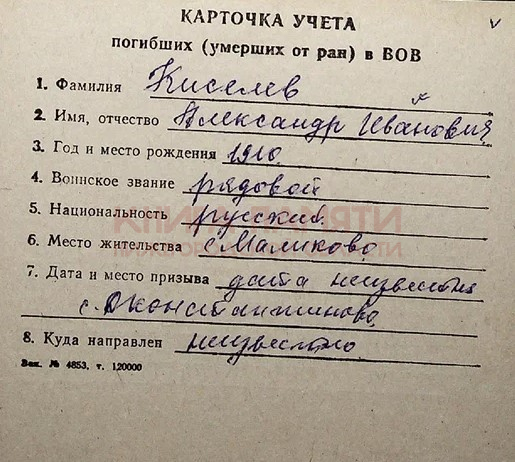 КАРТОЧКА УЧЕТА
погибших (умерших от ран) в ВОВ
1. Фамилия Киселев
2. Имя, отчество Александр Иванович
3. Год и место рождения 1910.
4. Воинское звание рядовой
5. Национальность русский
КНИГА ПАМЯТИ
6. Место жительства с. Маликово
7. Дата и место призыва дата неизвестна
с. Дконстантиново.
8. Куда направлен неизвестно.
Зак. № 4853, т. 120000